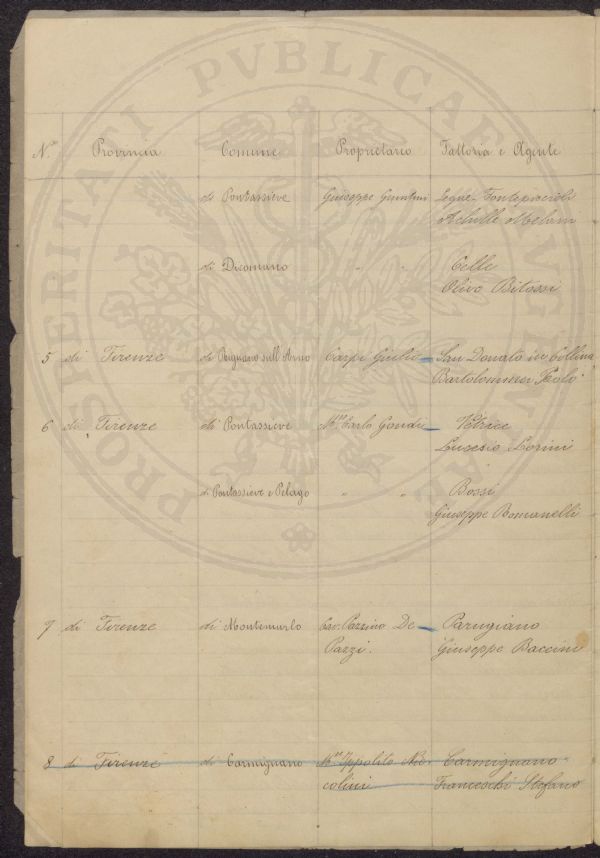 PROSPERITATI PVBLICAE AVGENDAE
N.º Provincia Comune Proprietario Fattoria e Agente
di Pontassieve Giuseppe Giuntini Fontepiccioli
Achille Melani
di Dicomano " " Celle
Olivo Bitossi
5 di Firenze di Rignano sull'Arno Carpi Giulio San Donato in Collina
Bartolommei Paolo
6 di Firenze di Pontassieve M.se Carlo Gondi Vetrice
Lucesio Lorini
di Pontassieve e Pelago " " Bossi
Giuseppe Romanelli
7 di Firenze di Montemurlo Cav. Pazzino De Parugiano
Pazzi. Giuseppe Baccini
8 di Firenze di Carmignano M.se Ippolito Nic- Carmignano
colini Franceschi Stefano